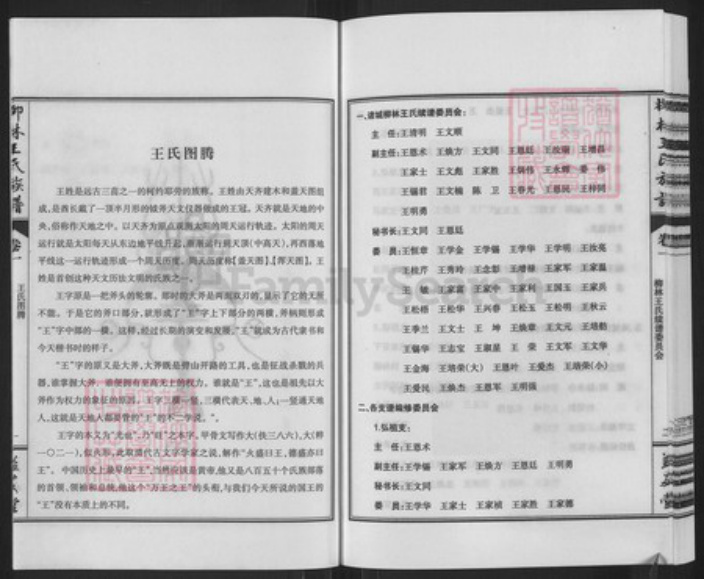 柳林王氏族谱
卷一
王氏图腾
王氏图腾
王姓是远古三黄之一的柯约耶劳的族称。王姓由天齐建木和盖天图组
成,是酋长戴了一顶半月形的钺斧天文仪器做成的王冠。天齐就是天地的中
央,俗称作天地之中。以天齐为原点观测太阳的周天运行轨迹。太阳的周天
运行就是太阳每天从东边地平线升起,渐渐运到天顶(中高天),再西落地
平线这一运行轨迹形成一个周天历度。周天历度称【盖天图】、【浑天图】。王
姓是首创这种天文历法文明的氏族之一。
王字原是一把斧头的轮廓。那时的大斧是两面双刃的,显示了它的无所
不能。于是它的斧口部分,就形成了"王"字上下部分的两横,斧柄则形成
"王"字中部的一横。这样,经过长期的演变和发展,"王"就成为古代隶书和
今天楷书时的样子。
"王"字的原义是大斧,大斧既是劈山开路的工具,也是征战杀戮的兵
器,谁掌握大斧,谁便拥有至高无上的权力。谁就是"王",这也是祖先以大
斧作为权力的象征的原因。王字三横一竖,三横代表天、地、人;一竖通天地
人,这就是天地人都要管的"王"的不二学说。"。
王字的本义为"光也",乃"旺"之本字。甲骨文写作大(佚三八六),大(粹
一〇二一),似火形,此取清代古文字学家之说,解作"火盛曰王,德盛亦曰
王"。中国历史上最早的"王",当然应该是黄帝,他又是八百五十个氏族部落
的首领、领袖和总统,他这个"万王之王"的头衔,与我们今天所说的国王的
"王"没有本质上的不同。
一、诸城柳林王氏续谱委员会:
主 任:王清明 王文顺
副主任:王恩术 王焕方 王文同 王恩廷 王汝瑚 王增昌
王家士 王文彪 王家胜 王炳伟 王永辉 姜伟
王锡君 王文楠 陈 卫 王春光 王恩民 王梓同
王明勇
秘书长:王文同 王恩廷
委 员:王恒章 王学金 王学锡 王学华 王学明 王汝亮
王桂芹 王秀玲 王念彭 王增禄 王家军 王家温
王 敏 王家庭 王家中 王家利 王国玉 王家兵
王松梧 王松华 王兴春 王松玉 王松明 王秋云
王季兰 王文士 王 坤 王焕章 王文元 王培勤
王锡华 王志宝 王淑星 王 荣 王文军 王文华
王金海 王培荣(大) 王恩叶 王爱杰 王培荣(小)
王爱民 王焕杰 王恩军 王明强
二、各支谱编修委员会
1.弘祖支:
主 任:王恩术
副主任:王学锡 王家军 王焕方 王恩廷 王明勇
秘书长:王文同
委 员:王学华 王家士 王家祯 王家胜 王家德
柳林王氏续谱委员会
FamilySearch